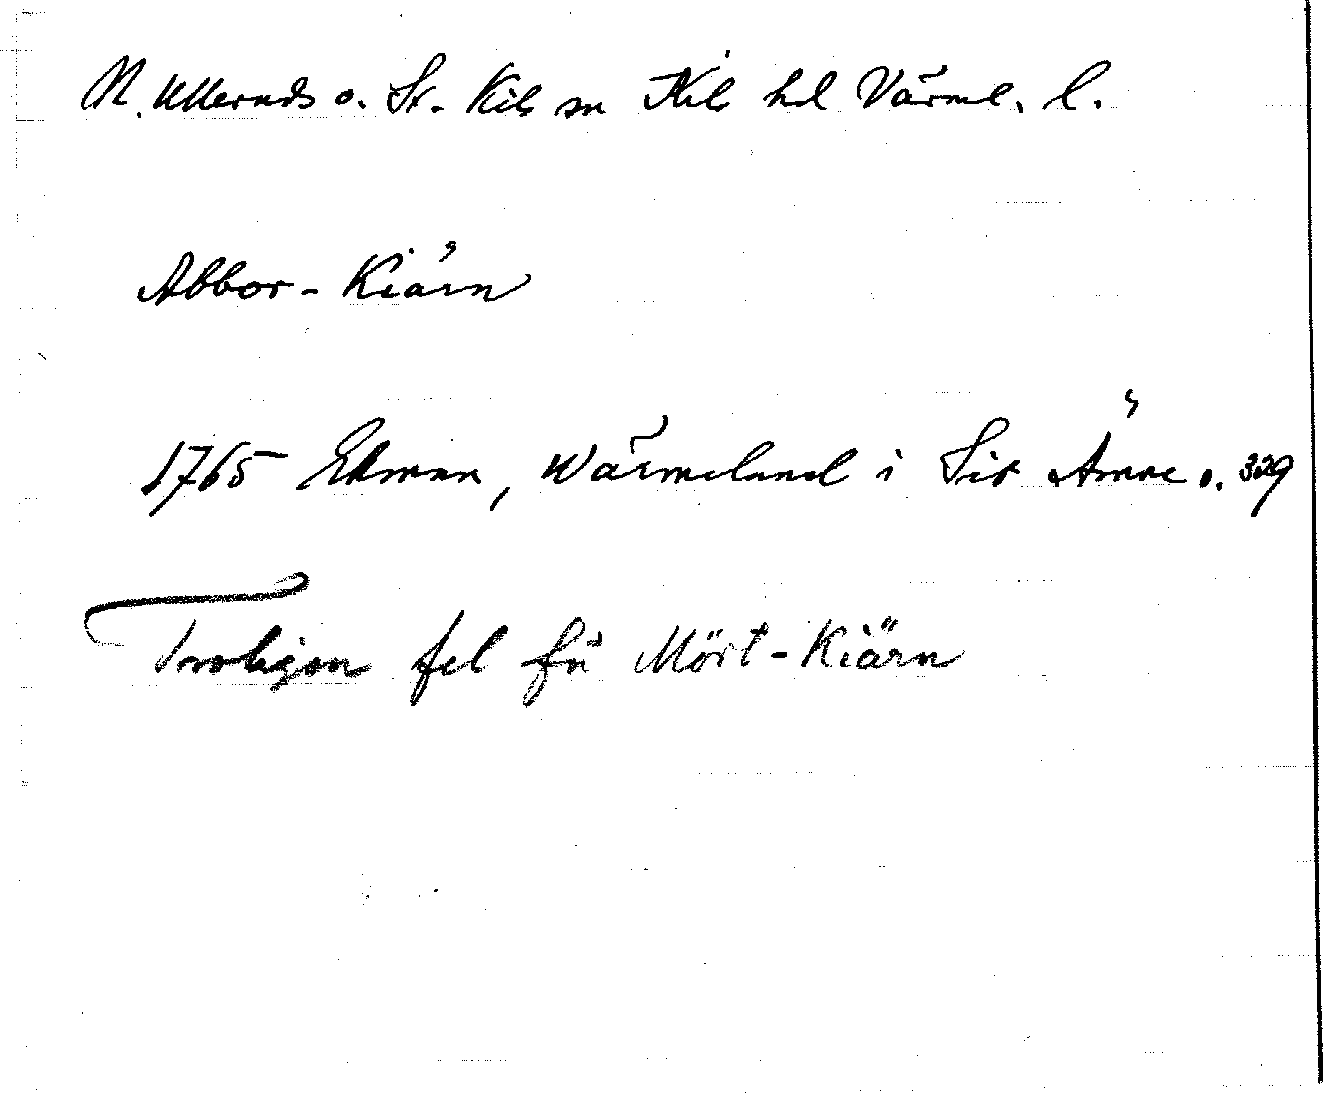 N. Ulleruds o. St. Kils sn Kils hd Värml. l.
Abbor-Kiärn
1765 Ekman, Wärmeland i Sit Ämne s. 329
Troligen fel för Mört-Kiärn